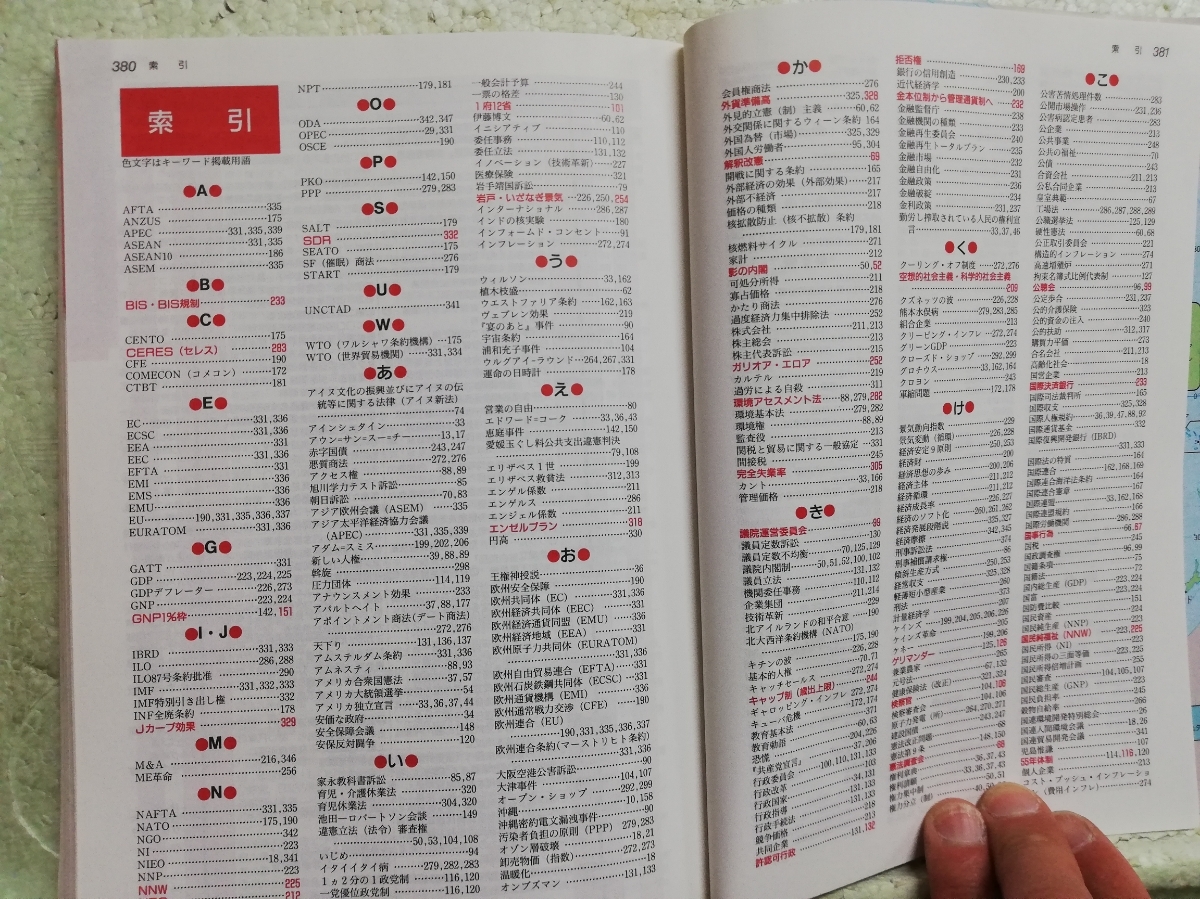 380 索 引
索 引
色文字はキーワード掲載用語
●A●
AFTA 335
ANZUS 175
APEC 331,335,339
ASEAN 331,335
ASEAN10 186
ASEM 335
●B●
BIS・BIS規制 233
●C●
CENTO 175
CERES（セレス） 283
CFE 190
COMECON（コメコン） 172
CTBT 181
●E●
EC 331,336
ECSC 331,336
EEA 331
EEC 331,336
EFTA 331
EMI 331
EMS 336
EMU 336
EU 190,331,335,336,337
EURATOM 331,336
●G●
GATT 331
GDP 223,224,225
GDPデフレーター 226,273
GNP 223,224
GNP1％枠 142,151
●I・J●
IBRD 331,333
ILO 286,288
ILO87号条約批准 290
IMF 331,332,333
IMF特別引き出し権 332
INF全廃条約 178
Jカーブ効果 329
●M●
M&A 216,346
ME革命 256
●N●
NAFTA 331,335
NATO 175,190
NGO 342
NI 223
NIEO 18,341
NNP 223
NNW 225
NPT 179,181
●O●
ODA 342,347
OPEC 29,331
OSCE 190
●P●
PKO 142,150
PPP 279,283
●S●
SALT 179
SDR 332
SEATO 175
SF（催眠）商法 276
START 179
●U●
UNCTAD 341
●W●
WTO（ワルシャワ条約機構） 175
WTO（世界貿易機関） 331,334
●あ●
アイヌ文化の振興並びにアイヌの伝
統等に関する法律（アイヌ新法）
74
アインシュタイン 33
アウン=サン=スー=チー 13,17
赤字国債 243,247
悪質商法 272,276
アクセス権 88,89
旭川学力テスト訴訟 85
朝日訴訟 70,83
アジア欧州会議（ASEM） 335
アジア太平洋経済協力会議
（APEC） 331,335,339
アダム=スミス 199,202,206
新しい人権 39,88,89
斡旋 298
圧力団体 114,119
アナウンスメント効果 233
アパルトヘイト 37,88,177
アポイントメント商法（デート商法）
272,276
天下り 131,136,137
アムステルダム条約 331,336
アムネスティ 88,93
アメリカ合衆国憲法 37,57
アメリカ大統領選挙 54
アメリカ独立宣言 33,36,37,44
安価な政府 34
安全保障会議 148
安保反対闘争 120
●い●
家永教科書訴訟 85,87
育児・介護休業法 320
育児休業法 304,320
池田―ロバートソン会談 149
違憲立法（法令）審査権
50,53,104,108
いじめ 94
イタイイタイ病 279,282,283
1ヵ2分の1政党制 116,120
一党優位政党制 116,120
一般会計予算 244
一票の格差 130
1府12省 101
伊藤博文 60,62
イニシアティブ 110
委任事務 110,112
委任立法 131,132
イノベーション（技術革新） 227
医療保険 321
岩手靖国訴訟 79
岩戸・いざなぎ景気 226,250,254
インターナショナル 286,287
インドの核実験 180
インフォームド・コンセント 91
インフレーション 272,274
●う●
ウィルソン 33,162
植木枝盛 62
ウエストファリア条約 162,163
ヴェブレン効果 219
『宴のあと』事件 90
宇宙条約 164
浦和充子事件 104
ウルグアイ-ラウンド 264,267,331
運命の日時計 178
●え●
営業の自由 80
エドワード=コーク 33,36,43
恵庭事件 142,150
愛媛玉ぐし料公共支出違憲判決
79,108
エリザベス1世 199
エリザベス救貧法 312,313
エンゲル係数 211
エンゲルス 286
エンジェル係数 211
エンゼルプラン 318
円高 330
●お●
王権神授説 36
欧州安全保障 190
欧州共同体（EC） 331,336
欧州経済共同体（EEC） 331
欧州経済通貨同盟（EMU） 336
欧州経済地域（EEA） 331
欧州原子力共同体（EURATOM）
331,336
欧州自由貿易連合（EFTA） 331
欧州石炭鉄鋼共同体（ECSC） 331
欧州通貨機構（EMI） 336
欧州通常戦力交渉（CFE） 190
欧州連合（EU）
190,331,335,336,337
欧州連合条約（マーストリヒト条約）
331,336
大阪空港公害訴訟 90
大津事件 104,107
オープン・ショップ 292,299
沖縄 10,158
沖縄密約電文漏洩事件 90
汚染者負担の原則（PPP） 279,283
オゾン層破壊 18,21
卸売物価（指数） 272,273
温暖化 18
オンブズマン 131,133
索 引 381
●か●
会員権商法 276
外貨準備高 325,328
外見的立憲（制）主義 60,62
外交関係に関するウィーン条約 164
外国為替（市場） 325,329
外国人労働者 95,304
解釈改憲 69
開戦に関する条約 165
外部経済の効果（外部効果） 217
外部不経済 217
価格の種類 218
核拡散防止（核不拡散）条約
179,181
核燃料サイクル 271
家計 212
影の内閣 50,52
可処分所得 211
寡占価格 218
かたり商法 276
過度経済力集中排除法 252
株式会社 211,213
株主総会 213
株主代表訴訟 215
ガリオア・エロア 252
カルテル 219
過労による自殺 311
環境アセスメント法 88,279,282
環境基本法 279,282
環境権 88,89
監査役 213
関税と貿易に関する一般協定 331
間接税 245
完全失業率 305
カント 33,166
管理価格 218
●き●
議院運営委員会 99
議員定数訴訟 130
議員定数不均衡 70,125,129
議院内閣制 50,51,52,100,102
議員立法 131,132
機関委任事務 110,112
企業集団 211,214
技術革新 229
北アイルランドの和平合意 190
北大西洋条約機構（NATO）
175,190
キチンの波 226,228
基本的人権 70,71
キャッチセールス 272,274
キャップ制（歳出上限） 244
ギャロッピング・インフレ 272,274
キューバ危機 172,174
教育基本法 371
教育勅語 63
恐慌 204,226
『共産党宣言』 206
行政委員会 100,110,131,133
行政改革 131,133
行政国家 34,131
行政指導 131,133
行政手続法 131,133
競争価格 218
共同企業 213
許認可行政 131,132
拒否権 169
銀行の信用創造 230,233
近代経済学 200
金本位制から管理通貨制へ 232
金融監督庁 238
金融機関の種類 233
金融再生委員会 240
金融再生トータルプラン 235
金融市場 232
金融自由化 231
金融政策 236
金融破綻 234
金利政策 231,237
勤労し搾取されている人民の権利宣
言 33,37,46
●く●
クーリング・オフ制度 272,276
空想的社会主義・科学的社会主義
209
クズネッツの波 226,228
熊本水俣病 279,283,285
組合企業 213
クリーピング・インフレ 272,274
グリーンGDP 223
クローズド・ショップ 292,299
グロチウス 33,162,164
クロヨン 243
軍縮問題 172,178
●け●
景気動向指数 229
景気変動（循環） 226,228
経済安定9原則 250
経済財 200
経済思想の歩み 200,206
経済主体 211,212
経済循環 211,212
経済成長率 226,227
経済のソフト化 250,261,262
経済発展段階説 325,327
経済摩擦 342,345
刑事訴訟法 374
刑事補償請求権 86
傾斜生産方式 250,253
経常収支 325,328
軽薄短小型産業 260
刑法 373
計量経済学 207
ケインズ 199,204,205,206,226
ケインズ革命 205
ケネー 199,206
ゲリマンダー 125,126
兼業農家 265
元号法 67,132
健康保険法（改正） 321,324
検察官 104,106
検察審査会 104,106
原子力発電（所） 264,270,271
建設国債 243,247
憲法改正問題 68
憲法第9条 148,150
憲法調査会 68
権利章典 33,36,37,43
権利請願 33,36,37,43
権力集中制 50,51
権力分立（制） 40,50
●こ●
公害苦情処理件数 283
公開市場操作 231,236
公害病認定患者 283
公企業 213
公共事業 248
公共の福祉 70
公債 243
合資会社 211,213
公私合同企業 213
皇室典範 67
工場法 286,287,288,289
公職選挙法 125,129
硬性憲法 60,68
公正取引委員会 221
構造的インフレーション 274
高速増殖炉 271
拘束名簿式比例代表制 127
公聴会 96,99
公定歩合 231,237
公的介護保険 323
公的資金の注入 240
公的扶助 312,317
購買力平価 273
合名会社 211,213
高齢化社会 18
国営企業 213
国際決済銀行 233
国際司法裁判所 165
国際収支 325,328
国際人権規約 36,39,47,88,92
国際通貨基金 332
国際復興開発銀行（IBRD）
331,333
国際法の特質 161
国際連合 162,168,169
国際連合海洋法条約 164
国際連合憲章 167
国際連盟 33,162,168
国際連盟規約 166
国際労働機関 286,288
国事行為 66,67
国税 245
国政調査権 96,99
国籍条項 75
国籍法 72
国内総生産（GDP） 223,224
国富 224
国防費比較 151
国民資産 224
国民純生産（NNP） 223
国民純福祉（NNW） 223,225
国民所得（NI） 223
国民所得の三面等価 223,225
国民所得倍増計画 255
国民審査 104,105,107
国民総生産（GNP） 223
国民負担率 245
穀物自給率 266
国連環境開発特別総会 26
国連人間環境会議 18,26
国連貿易開発会議 341
児島惟謙 107
55年体制 114,116,120
個人企業 213
コスト・プッシュ・インフレーショ
（費用インフレ） 274